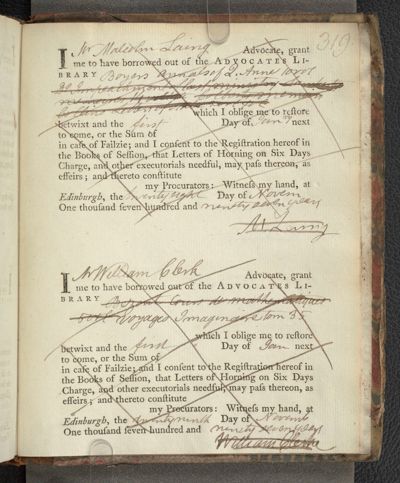 319
I, Mr Malcolm Laing Advocate, grant
me to have borrowed out of the ADVOCATES LI-
BRARY Boyers Annals of Q. Anne
which I oblige me to reſtore
betwixt and the first Day of Jany next
to come, or the Sum of
in caſe of Failzie; and I conſent to the Regiſtration hereof in
the Books of Seſſion, that Letters of Horning on Six Days
Charge, and other executorials needful, may paſs thereon, as
effeirs; and thereto conſtitute
my Procurators: Witneſs my hand, at
Edinburgh, the twenty eight Day of Novem
One thouſand ſeven hundred and ninety seven years
M. Laing
I, Mr William Clerk Advocate, grant
me to have borrowed out of the ADVOCATES LI-
BRARY Cours de mathematiques
Voyages Imaginaires tom 35
which I oblige me to reſtore
betwixt and the first Day of Jan next
to come, or the Sum of
in caſe of Failzie; and I conſent to the Regiſtration hereof in
the Books of Seſſion, that Letters of Horning on Six Days
Charge, and other executorials needful, may paſs thereon, as
effeirs; and thereto conſtitute
my Procurators: Witneſs my hand, at
Edinburgh, the twenty ninth Day of Novemr
One thouſand ſeven hundred and ninety seven years
William Clerk